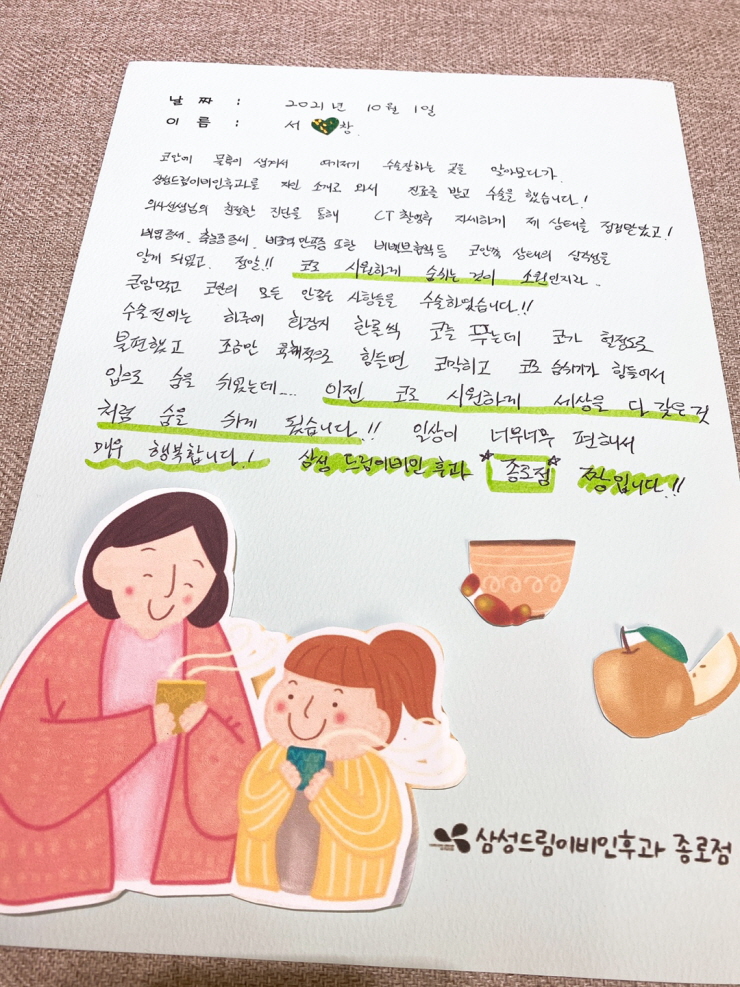 날 짜 : 2021년 10월 1일
이 름 : 서 창.
코안에 물혹이 생겨서 여기저기 수술잘하는 곳을 알아보다가.
삼성드림이비인후과를 지인 소개로 와서 진료를 받고 수술을 했습니다!
의사선생님의 친절한 진단을 통해 CT 촬영후 자세하게 제 상태를 점검받았고!
비염증세, 축농증증세, 비중격만곡증 또한 등 코안쪽 상태의 심각성을
알게 되었고. 정말!! 코로 시원하게 숨쉬는 것이 소원인지라.
큰맘먹고 코안의 모든 안좋은 사항들을 수술하였습니다!!
수술전에는 하루에 화장지 한롤씩 코를 푸는데 코가 헐정도로
불편했고 조금만 육체적으로 힘들면 코막히고 코로 숨쉬기가 힘들어서
입으로 숨을 쉬었는데.... 이젠 코로 시원하게 세상을 다 갖은것
처럼 숨을 쉬게 됬습니다!! 일상이 너무너무 편해서
매우 행복합니다! 삼성 드림이비인후과 종로점 짱입니다!!
삼성드림이비인후과 종로점